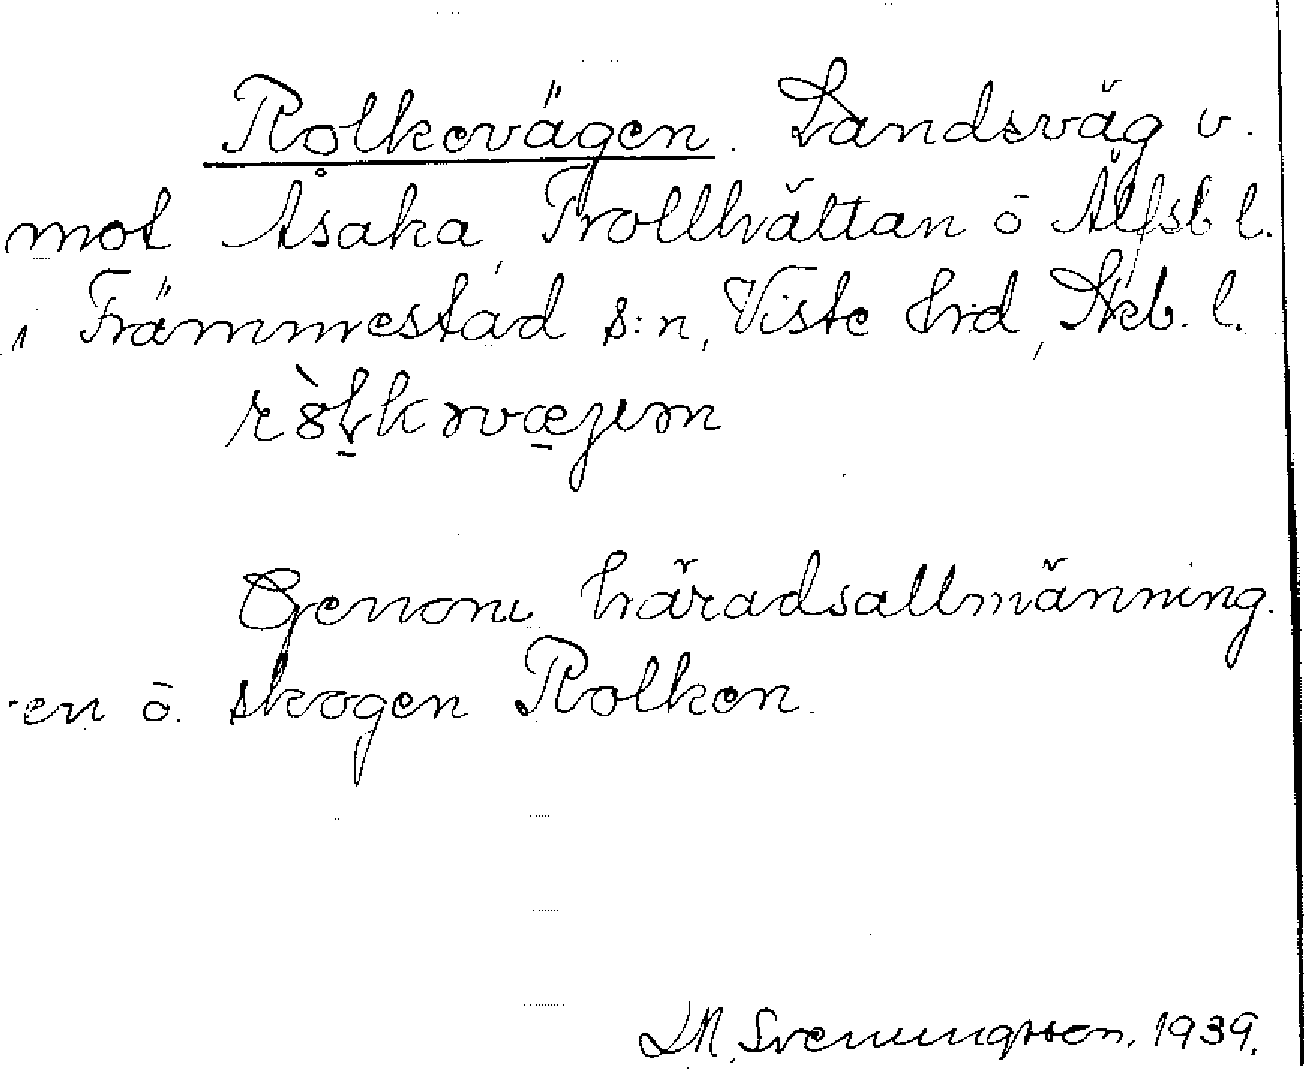 Rolkevägen. Landsväg v.
mot Åsaka, Trollhättan o Älfsb l.
i Främmestad s:n, Viste hrd, Skb. l.
Genom häradsallmänning
-en o. skogen Rolken.
Svenungsson. 1939.